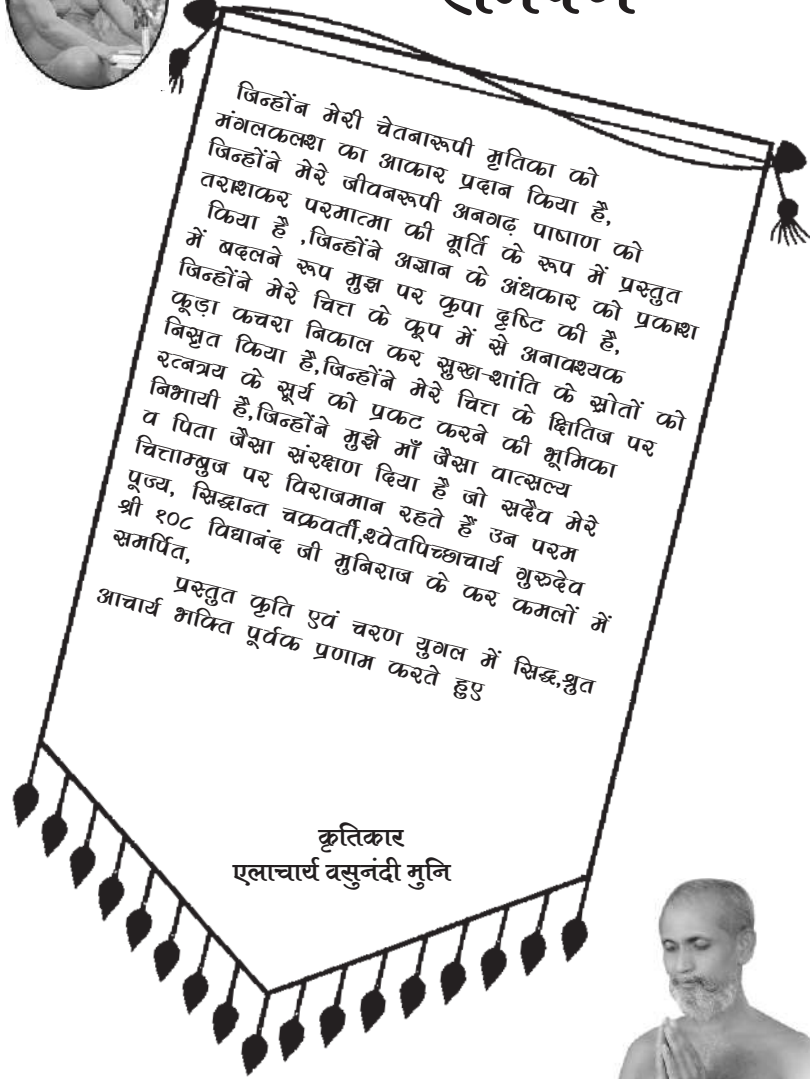 समर्पण
जिन्होंन मेरी चेतनारूपी मृतिका को
मंगलकलश का आकार प्रदान किया है,
जिन्होंने मेरे जीवनरूपी अनगढ़ पाषाण को
तराशकर परमात्मा की मूर्ति के रूप में प्रस्तुत
किया है ,जिन्होंने अज्ञान के अंधकार को प्रकाश
में बदलने रूप मुझ पर कृपा दृष्टि की है,
जिन्होंने मेरे चित्त के कूप में से अनावश्यक
कूड़ा कचरा निकाल कर सुख-शांति के स्रोतों को
निसृत किया है,जिन्होंने मेरे चित्त के क्षितिज पर
रत्नत्रय के सूर्य को प्रकट करने की भूमिका
निभायी है,जिन्होंने मुझे माँ जैसा वात्सल्य
व पिता जैसा संरक्षण दिया है जो सदैव मेरे
चित्ताम्बुज पर विराजमान रहते हैं उन परम
पूज्य, सिद्धान्त चक्रवर्ती,श्वेतपिच्छाचार्य गुरुदेव
श्री १०८ विद्यानंद जी मुनिराज के कर कमलों में
समर्पित,
प्रस्तुत कृति एवं चरण युगल में सिद्ध,श्रुत
आचार्य भक्ति पूर्वक प्रणाम करते हुए
कृतिकार
एलाचार्य वसुनंदी मुनि